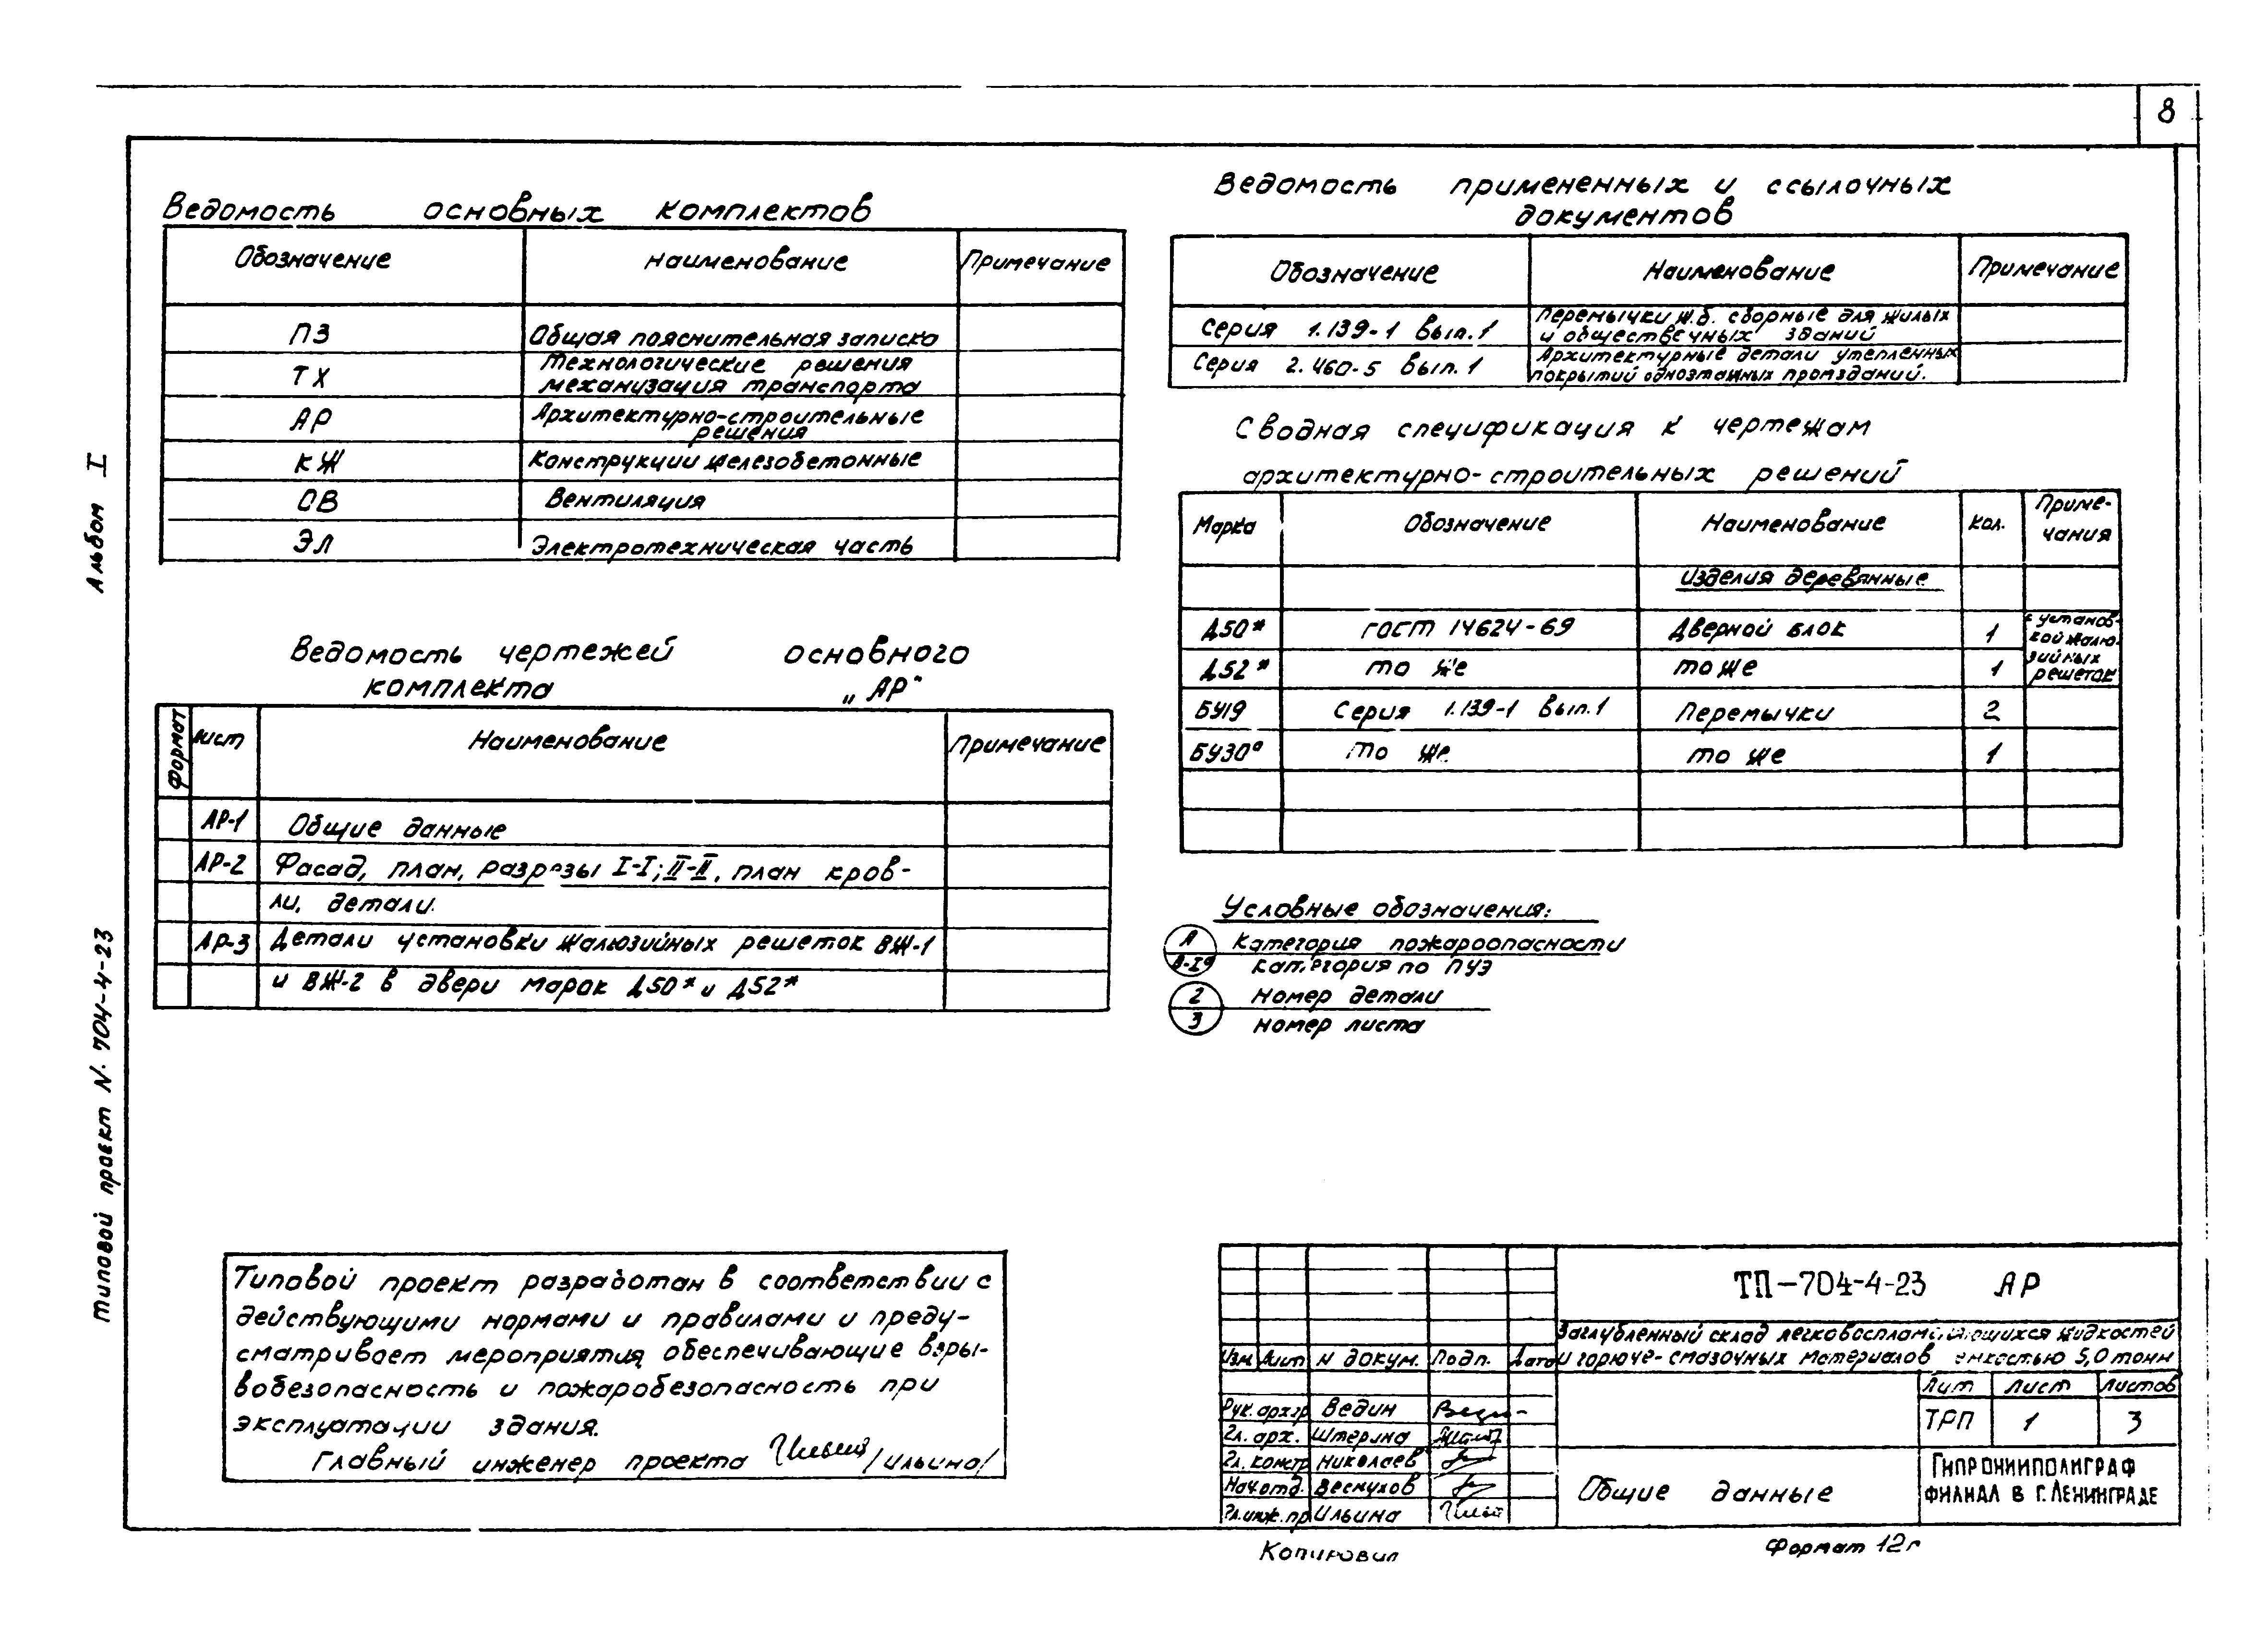 8
Альбом I
Типовой проект N. 704-4-23
Ведомость основных комплектов
Обозначение Наименование Примечание
ПЗ Общая пояснительная записка
ТХ Технологические решения
механизация транспорта
АР Архитектурно-строительные
решения
КЖ Конструкции железобетонные
ОВ Вентиляция
ЭЛ Электротехническая часть
Ведомость чертежей основного
комплекта „АР"
Формат Лист Наименование Примечание
АР-1 Общие данные
АР-2 Фасад, план, разрезы I-I; II-II, план кров-
ли, детали.
АР-3 Детали установки жалюзийных решеток ВЖ-1
и ВЖ-2 в двери марок Д50* и Д52*
Типовой проект разработан в соответствии с
действующими нормами и правилами и преду-
сматривает мероприятия, обеспечивающие взры-
вобезопасность и пожаробезопасность при
эксплуатации здания.
Главный инженер проекта /Ильина/
Ведомость примененных и ссылочных
документов
Обозначение Наименование Примечание
Серия 1.139-1 вып.1 Перемычки ж.б. сборные для жилых
и общественных зданий
Серия 2.460-5 вып.1 Архитектурные детали утепленных
покрытий одноэтажных промзданий.
Сводная спецификация к чертежам
архитектурно-строительных решений
Марка Обозначение Наименование Кол. Приме-
чания
Изделия деревянные
Д50* ГОСТ 14624-69 Дверной блок 1 с установ-
кой жалю-
Д52* то же то же 1 зийных
решеток
БУ19 Серия 1.139-1 вып.1 Перемычки 2
БУ30а то же то же 1
Условные обозначения:
А Категория пожароопасности
В-Iа категория по ПУЭ
2 Номер детали
3 номер листа
ТП-704-4-23 АР
Заглубленный склад легковоспламеняющихся жидкостей
и горюче-смазочных материалов емкостью 5,0 тонн
Изм Лист N докум. Подп. Дата
Лит Лист Листов
ТРП 1 3
Рук. арх.гр Ведин
Гл. арх. Штерина
Гл. констр Николаев
Нач.отд. Веснухов
Гл.инж.пр Ильина
Общие данные
Гипронииполиграф
филиал в г. Ленинграде
Копировал
Формат 12г